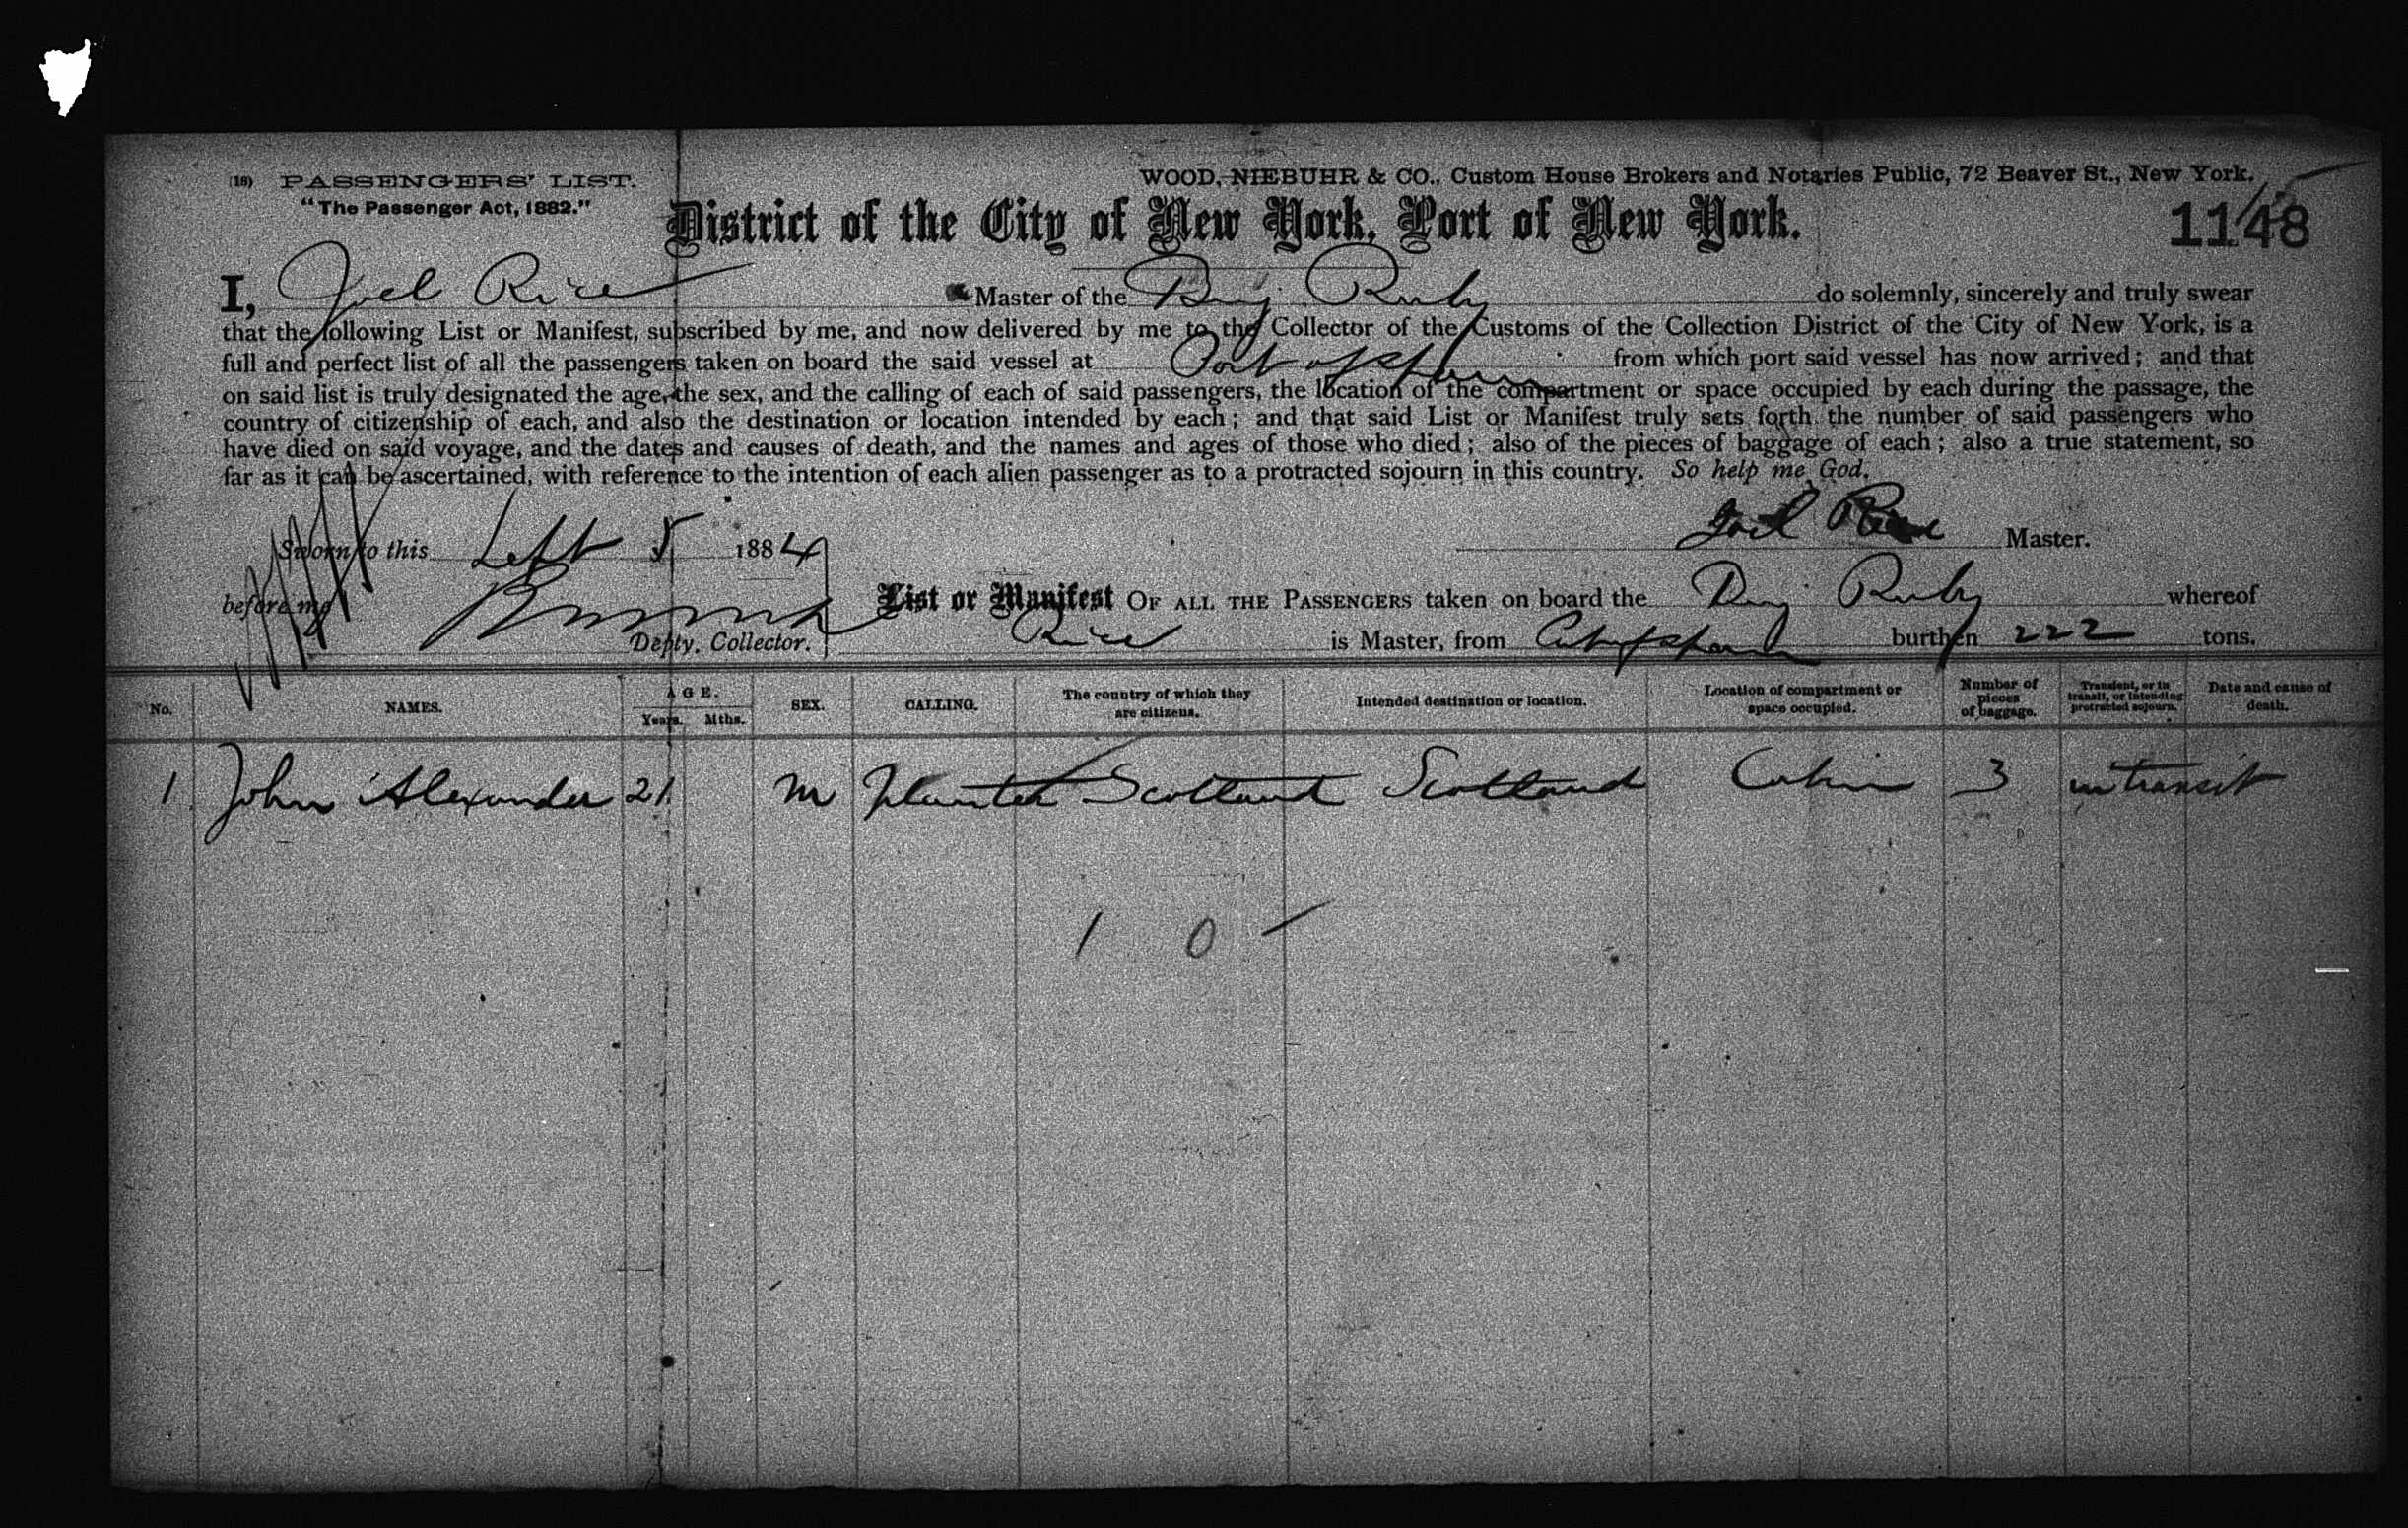 (18) PASSENGERS' LIST.
"The Passenger Act, 1882."
WOOD, NIEBUHR & CO., Custom House Brokers and Notaries Public, 72 Beaver St., New York.
District of the City of New York, Port of New York.
1148
I, Joel Rice Master of the Brig Ruby do solemnly, sincerely and truly swear
that the following List or Manifest, subscribed by me, and now delivered by me to the Collector of the Customs of the Collection District of the City of New York, is a
full and perfect list of all the passengers taken on board the said vessel at Port of Spain from which port said vessel has now arrived; and that
on said list is truly designated the age, the sex, and the calling of each of said passengers, the location of the compartment or space occupied by each during the passage, the
country of citizenship of each, and also the destination or location intended by each; and that said List or Manifest truly sets forth the number of said passengers who
have died on said voyage, and the dates and causes of death, and the names and ages of those who died; also of the pieces of baggage of each; also a true statement, so
far as it can be ascertained, with reference to the intention of each alien passenger as to a protracted sojourn in this country. So help me God.
Sworn to this Sept 5 1884
Joel Rice Master.
before me
Depty. Collector.
List or Manifest OF ALL THE PASSENGERS taken on board the Brig Ruby whereof
Rice is Master, from Port of Spain burthen 222 tons.
No. NAMES. AGE. Years. Mths. SEX. CALLING. The country of which they are citizens. Intended destination or location. Location of compartment or space occupied. Number of pieces of baggage. Transient, or in transit, or intending protracted sojourn. Date and cause of death.
1 John Alexander 21 M Planter Scotland Scotland Cabin 3 in transit
1 0